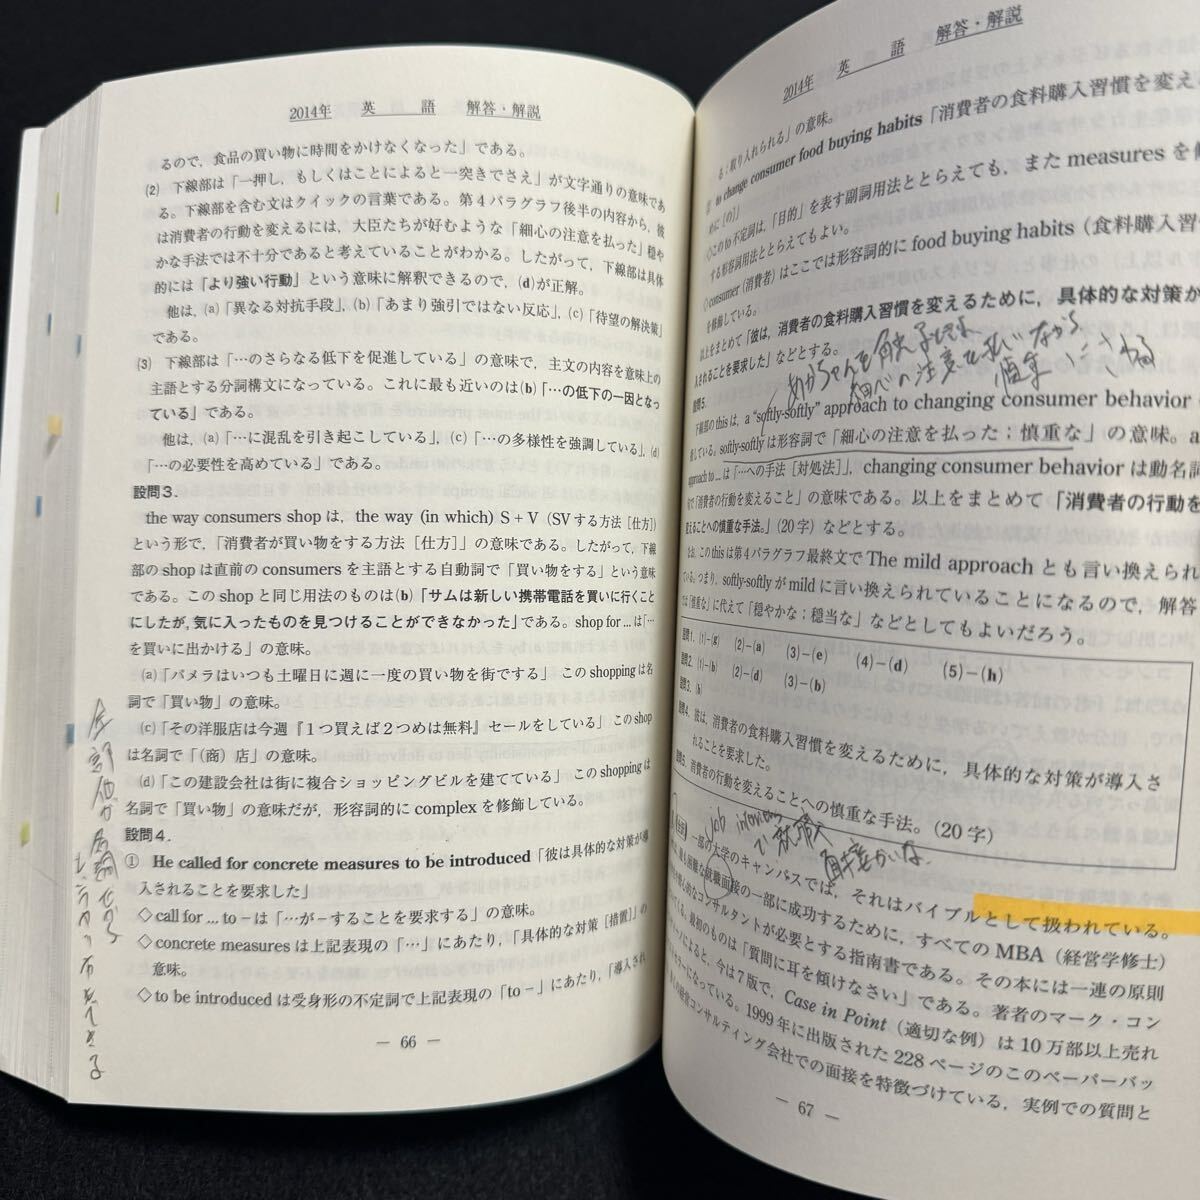 2014年　英　語　解答・解説
るので，食品の買い物に時間をかけなくなった」である。
(2)　下線部は「一押し，もしくはことによると一突きでさえ」が文字通りの意味であ
る。下線部を含む文はクイックの言葉である。第４パラグラフ後半の内容から，彼
は消費者の行動を変えるには，大臣たちが好むような「細心の注意を払った」穏や
かな手法では不十分であると考えていることがわかる。したがって，下線部は具体
的には「より強い行動」という意味に解釈できるので，(d)が正解。
他は，(a)「異なる対抗手段」，(b)「あまり強引ではない反応」，(c)「待望の解決策」
である。
(3)　下線部は「…のさらなる低下を促進している」の意味で，主文の内容を意味上の
主語とする分詞構文になっている。これに最も近いのは(b)「…の低下の一因となっ
ている」である。
他は，(a)「…に混乱を引き起こしている」，(c)「…の多様性を強調している」，(d)
「…の必要性を高めている」である。
設問３．
the way consumers shopは，the way (in which) S＋V（SVする方法［仕方］）
という形で，「消費者が買い物をする方法［仕方］」の意味である。したがって，下線
部のshopは直前のconsumersを主語とする自動詞で「買い物をする」という意味
である。このshopと同じ用法のものは(b)「サムは新しい携帯電話を買いに行くこと
にしたが，気に入ったものを見つけることができなかった」である。shop for ...は「…
を買いに出かける」の意味。
(a)「パメラはいつも土曜日に週に一度の買い物を街でする」　このshoppingは名
詞で「買い物」の意味。
(c)「その洋服店は今週『１つ買えば２つめは無料』セールをしている」このshop
は名詞で「(商) 店」の意味。
(d)「この建設会社は街に複合ショッピングビルを建てている」　このshoppingは
名詞で「買い物」の意味だが，形容詞的にcomplexを修飾している。
設問４．
①　He called for concrete measures to be introduced「彼は具体的な対策が導
入されることを要求した」
◇call for ... to－は「…が－することを要求する」の意味。
◇concrete measuresは上記表現の「…」にあたり，「具体的な対策［措置］」の
意味。
◇to be introducedは受身形の不定詞で上記表現の「to－」にあたり，「導入され
― 66 ―
2014年　英　語　解答・解説
る；取り入れられる」の意味。
to change consumer food buying habits「消費者の食料購入習慣を変え
ために［の］」
◇このto不定詞は，「目的」を表す副詞用法ととらえても，またmeasuresを
する形容詞用法ととらえてもよい。
◇consumer（消費者）はここでは形容詞的にfood buying habits（食料購入習
を修飾している。
以上をまとめて「彼は，消費者の食料購入習慣を変えるために，具体的な対策が
入されることを要求した」などとする。
設問5．
下線部のthisは，a “softly-softly” approach to changing consumer behavior
指している。softly-softlyは形容詞で「細心の注意を払った；慎重な」の意味。a
approach to ...は「…への手法［対処法］」，changing consumer behaviorは動名詞
句で「消費者の行動を変えること」の意味である。以上をまとめて「消費者の行動を
変えることへの慎重な手法。」（20字）などとする。
なお，このthisは第４パラグラフ最終文でThe mild approachとも言い換えられ
ている。つまり，softly-softlyがmildに言い換えられていることになるので，解答
は「慎重な」に代えて「穏やかな；穏当な」などとしてもよいだろう。
設問1．(1)－(g)　(2)－(a)　(3)－(e)　(4)－(d)　(5)－(h)
設問2．(1)－(b)　(2)－(d)　(3)－(b)
設問3．(b)
設問4．彼は，消費者の食料購入習慣を変えるために，具体的な対策が導入さ
れることを要求した。
設問5．消費者の行動を変えることへの慎重な手法。（20字）
job interview
一部の大学のキャンパスでは，それはバイブルとして扱われている。
最も困難な就職面接の一部に成功するために，すべてのMBA（経営学修士）
コンサルタントが必要とする指南書である。その本には一連の原則
最初のものは「質問に耳を傾けなさい」である。著者のマーク・コン
によると，今は7版で，Case in Point（適切な例）は10万部以上売れ
になっている。1999年に出版された228ページのこのペーパーバッ
経営コンサルティング会社での面接を特徴づけている，実例での質問と
― 67 ―